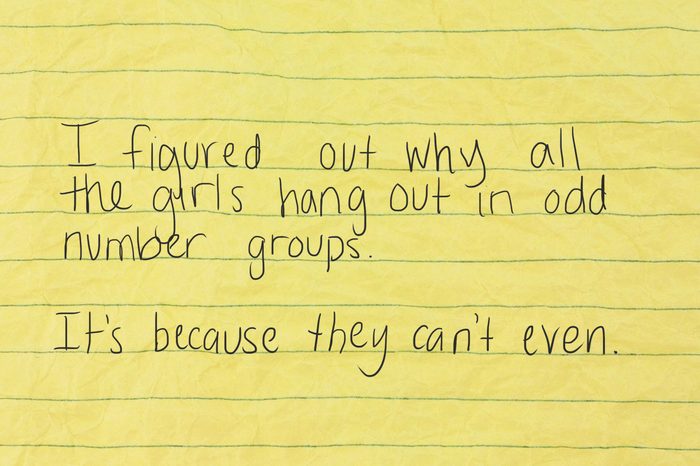 I figured out why all
the girls hang out in odd
number groups.
It's because they can't even.